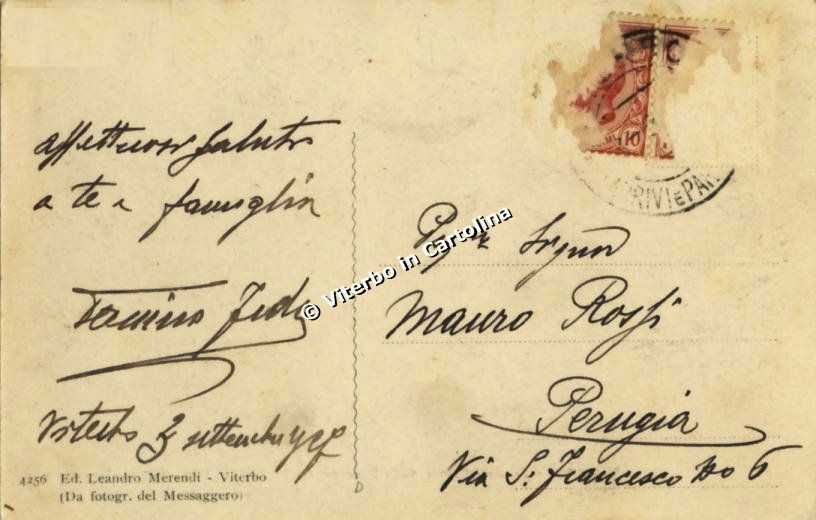 affettuosi saluti
a te e famiglia
Viterbo 3 settembre
4256 Ed. Leandro Merendi - Viterbo
(Da fotogr. del Messaggero)
© Viterbo in Cartolina
10
ARRIVI E PAR
Signor
Mauro Rossi
Perugia
Via S. Francesco No 6